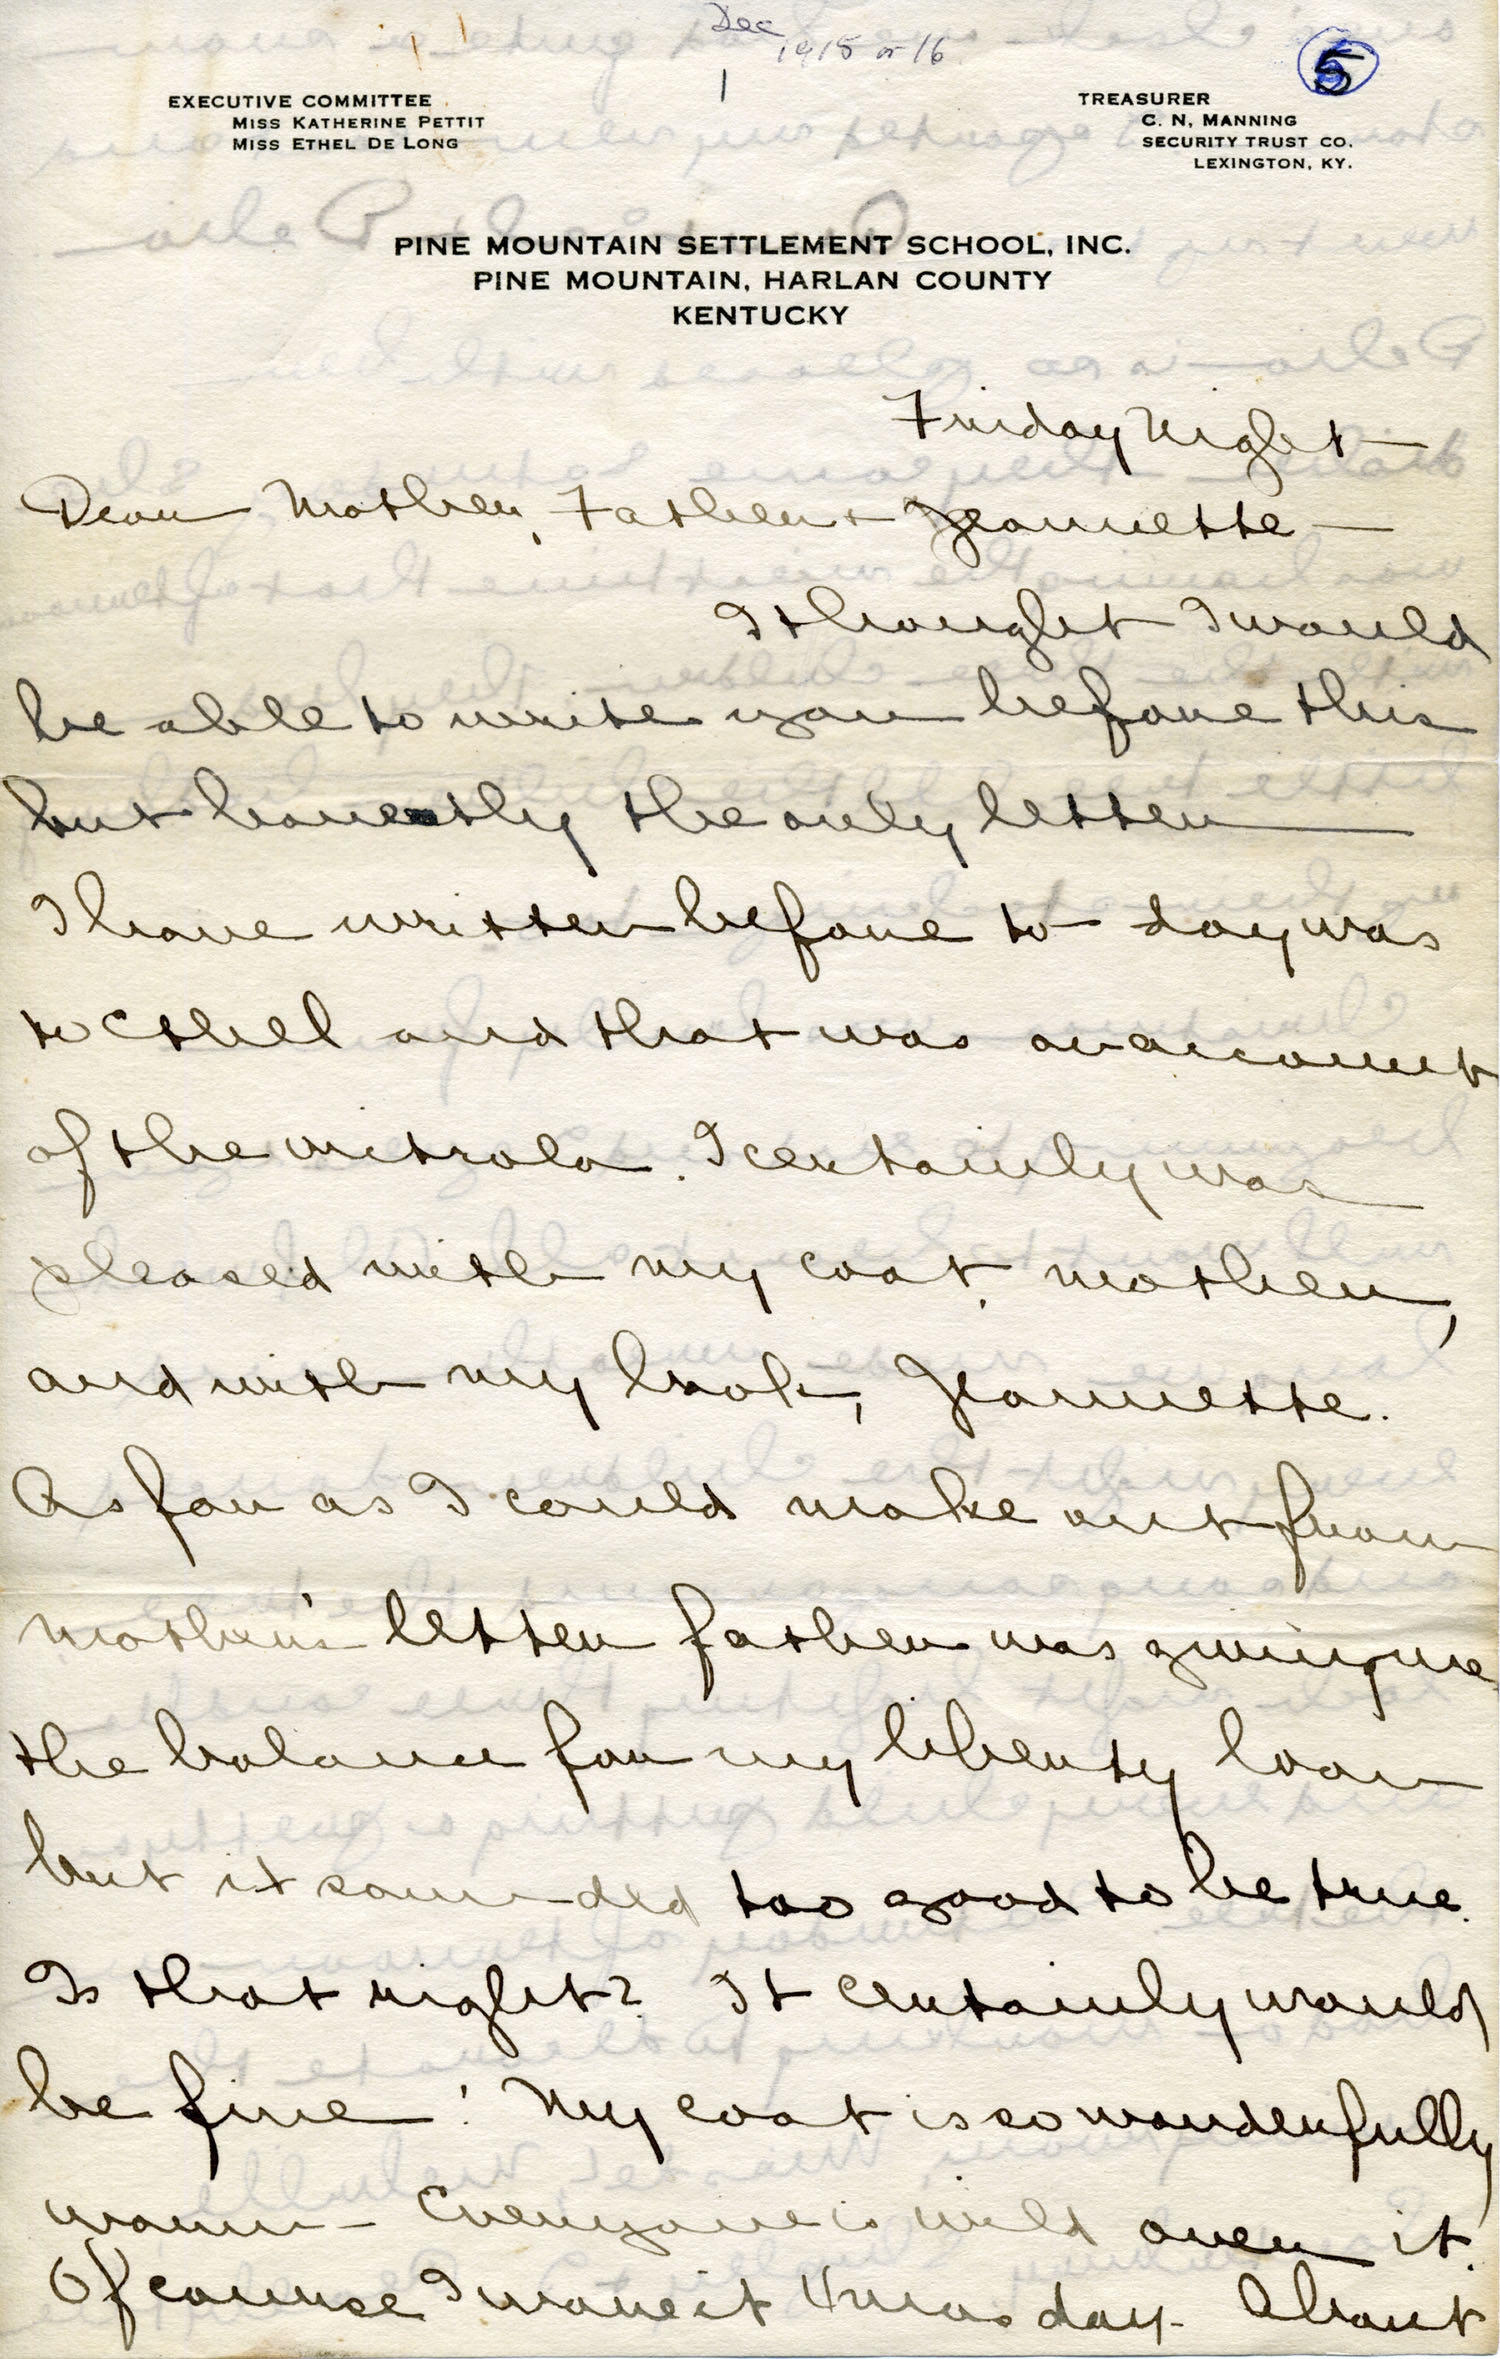 Dec
1915 or 16
5
1
EXECUTIVE COMMITTEE
MISS KATHERINE PETTIT
MISS ETHEL DE LONG
TREASURER
C. N. MANNING
SECURITY TRUST CO.
LEXINGTON, KY.
PINE MOUNTAIN SETTLEMENT SCHOOL, INC.
PINE MOUNTAIN, HARLAN COUNTY
KENTUCKY
Friday Night
Dear Mother, Father + Jeannette —
I thought I would
be able to write you before this
but honestly the only letter
I have written before to-day was
to Ethel and that was on account
of the victrola. I certainly was
pleased with my coat, mother,
and with my book, Jeannette.
As far as I could make out from
mother's letter father was giving me
the balance for my liberty loan
but it sounded too good to be true.
Is that right? It certainly would
be fine! My coat is so wonderfully
warm - Everyone is wild over it.
Of course I wore it Xmas day. About